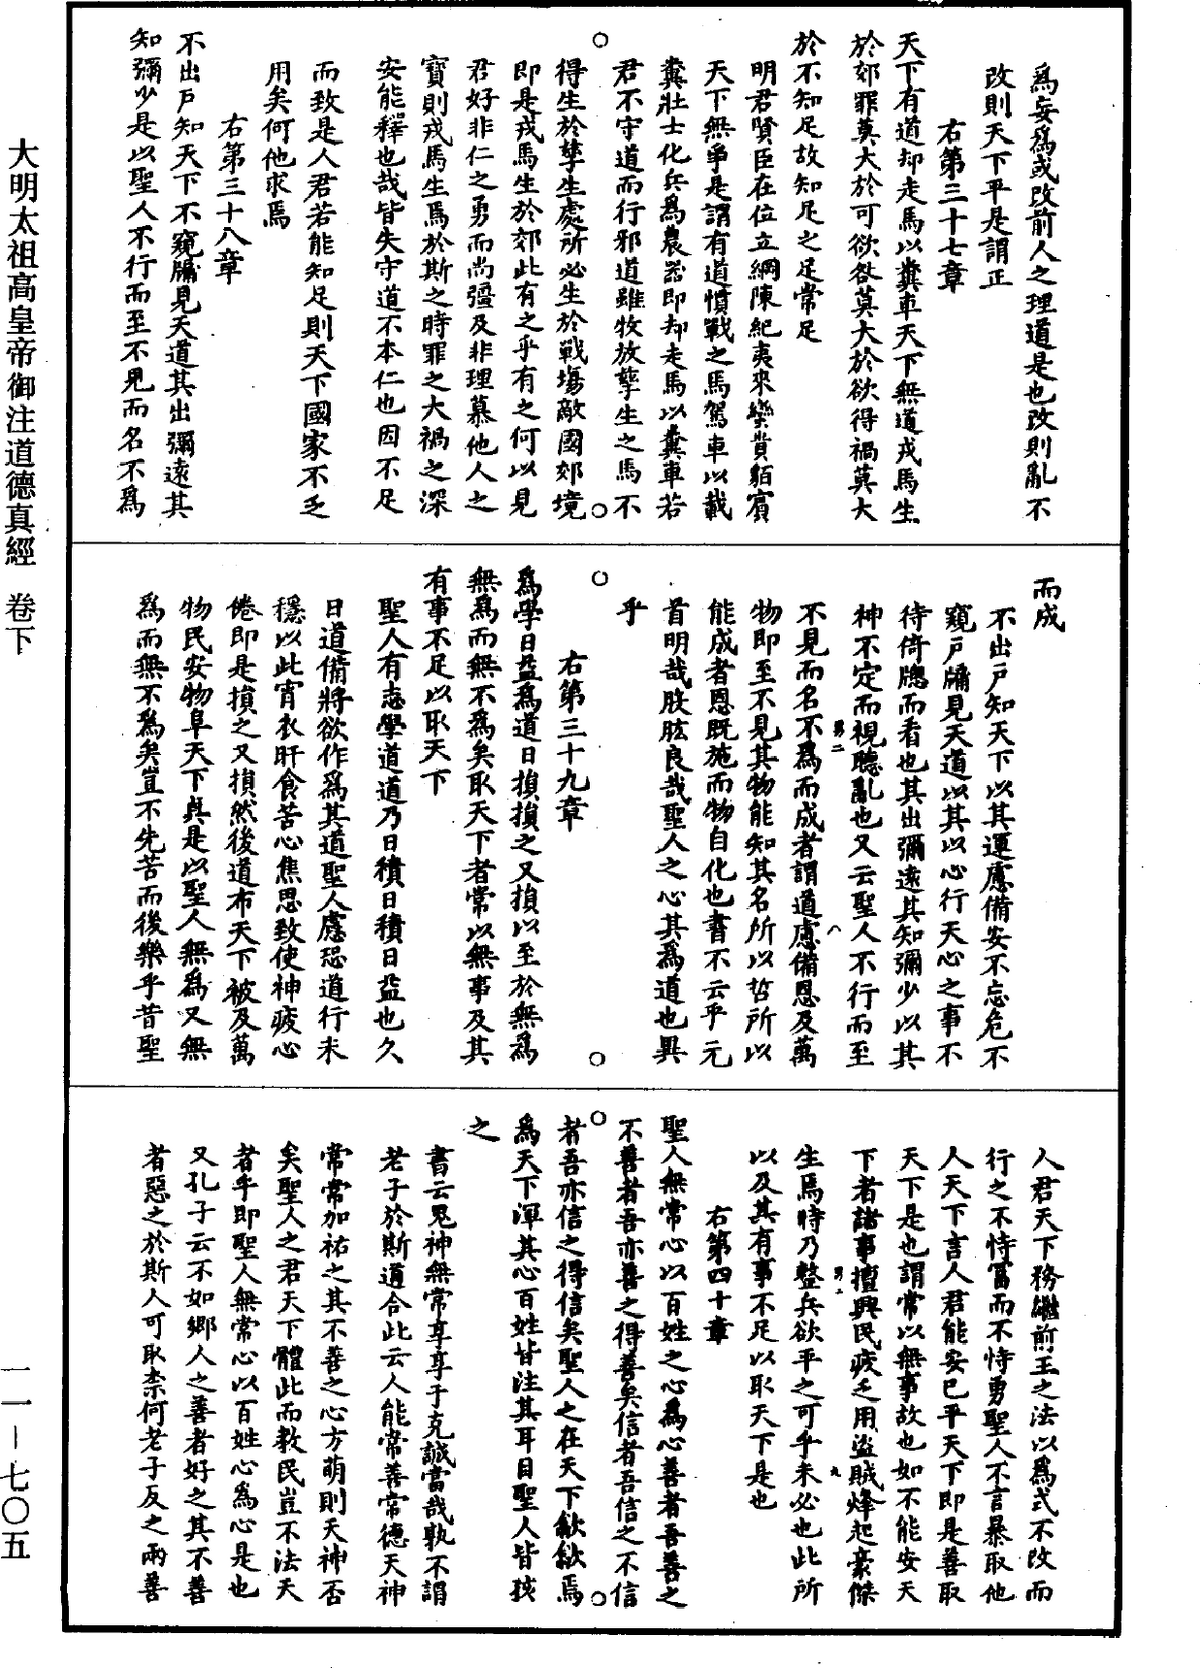 爲妄爲或改前人之理道是也改則亂不
改則天下平是謂正
右第三十七章
天下有道却走馬以糞車天下無道戎馬生
於郊罪莫大於可欲咎莫大於欲得禍莫大
於不知足故知足之足常足
明君賢臣在位立綱陳紀夷來蠻貴貊賓
天下無爭是謂有道慣戰之馬駕車以載
糞壯士化兵爲農器即却走馬以糞車若
君不守道而行邪道雖牧放孳生之馬不
得生於孳生處所必生於戰塲敵國郊境
即是戎馬生於郊此有之乎有之何以見
君好非仁之勇而尚彊及非理慕他人之
寳則戎馬生焉於斯之時罪之大禍之深
安能釋也哉皆失守道不本仁也因不足
而致是人君若能知足則天下國家不乏
用矣何他求焉
右第三十八章
不出戶知天下不窺牖見天道其出彌遠其
知彌少是以聖人不行而至不見而名不爲
而成
不出戶知天下以其運慮備安不忘危不
窺戶牖見天道以其以心行天心之事不
待倚牕而看也其出彌遠其知彌少以其
神不定而視聽亂也又云聖人不行而至
不見而名不爲而成者謂道慮備恩及萬
物即至不見其物能知其名所以哲所以
能成者恩既施而物自化也書不云乎元
首明哉股肱良哉聖人之心其爲道也異
乎
右第三十九章
爲學日益爲道日損損之又損以至於無爲
無爲而無不爲矣取天下者常以無事及其
有事不足以取天下
聖人有志學道道乃日積日積日益也久
日道備將欲作爲其道聖人慮恐道行未
穩以此宵衣旰食苦心焦思致使神疲心
倦即是損之又損然後道布天下被及萬
物民安物阜天下貞是以聖人無爲又無
爲而無不爲矣豈不先苦而後樂乎昔聖
人君天下務繼前王之法以爲式不改而
行之不恃富而不恃勇聖人不言暴取他
人天下言人君能安已乎天下即是善取
天下是也謂常以無事故也如不能安天
下者諸事擅興民疲乏用盜賊烽起豪傑
生焉時乃整兵欲平之可乎未必也此所
以及其有事不足以取天下是也
右第四十章
聖人無常心以百姓之心爲心善者吾善之
不善者吾亦善之得善矣信者吾信之不信
者吾亦信之得信矣聖人之在天下歙歙焉
爲天下渾其心百姓皆注其耳目聖人皆孩
之
書云鬼神無常享享于克誠當哉孰不謂
老子於斯道合此云人能常善常德天神
常常加祐之其不善之心方萌則天神否
矣聖人之君天下體此而教民豈不法天
者乎即聖人無常心以百姓心爲心是也
又孔子云不如鄉人之善者好之其不善
者惡之於斯人可取柰何老子反之兩善
大明太祖高皇帝御注道德真經　卷下
一一－七〇五